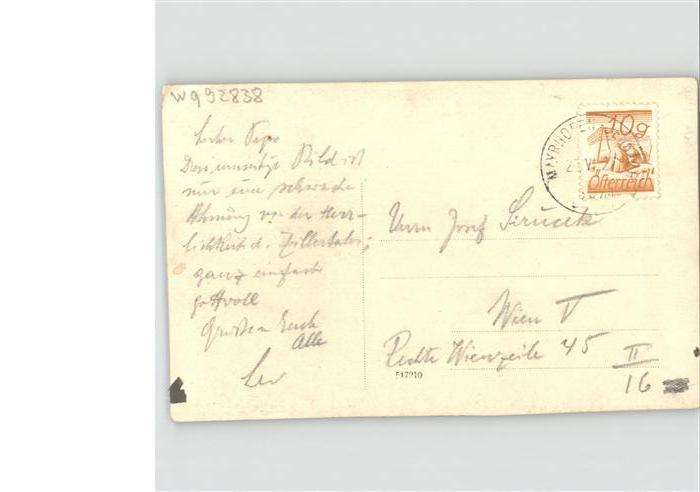 W992838
Lieber Papa
Das umseitige Bild ist
nur eine schwache
Ahnung von der Herr-
lichkeit d. Zillertales;
ganz einfach
gottvoll
Grüße an Euch
Alle
Leo
MAYRHOFEN
10g
Österreich
Herrn Josef
Wien V
Rechte Wienzeile 45
II
16
517910